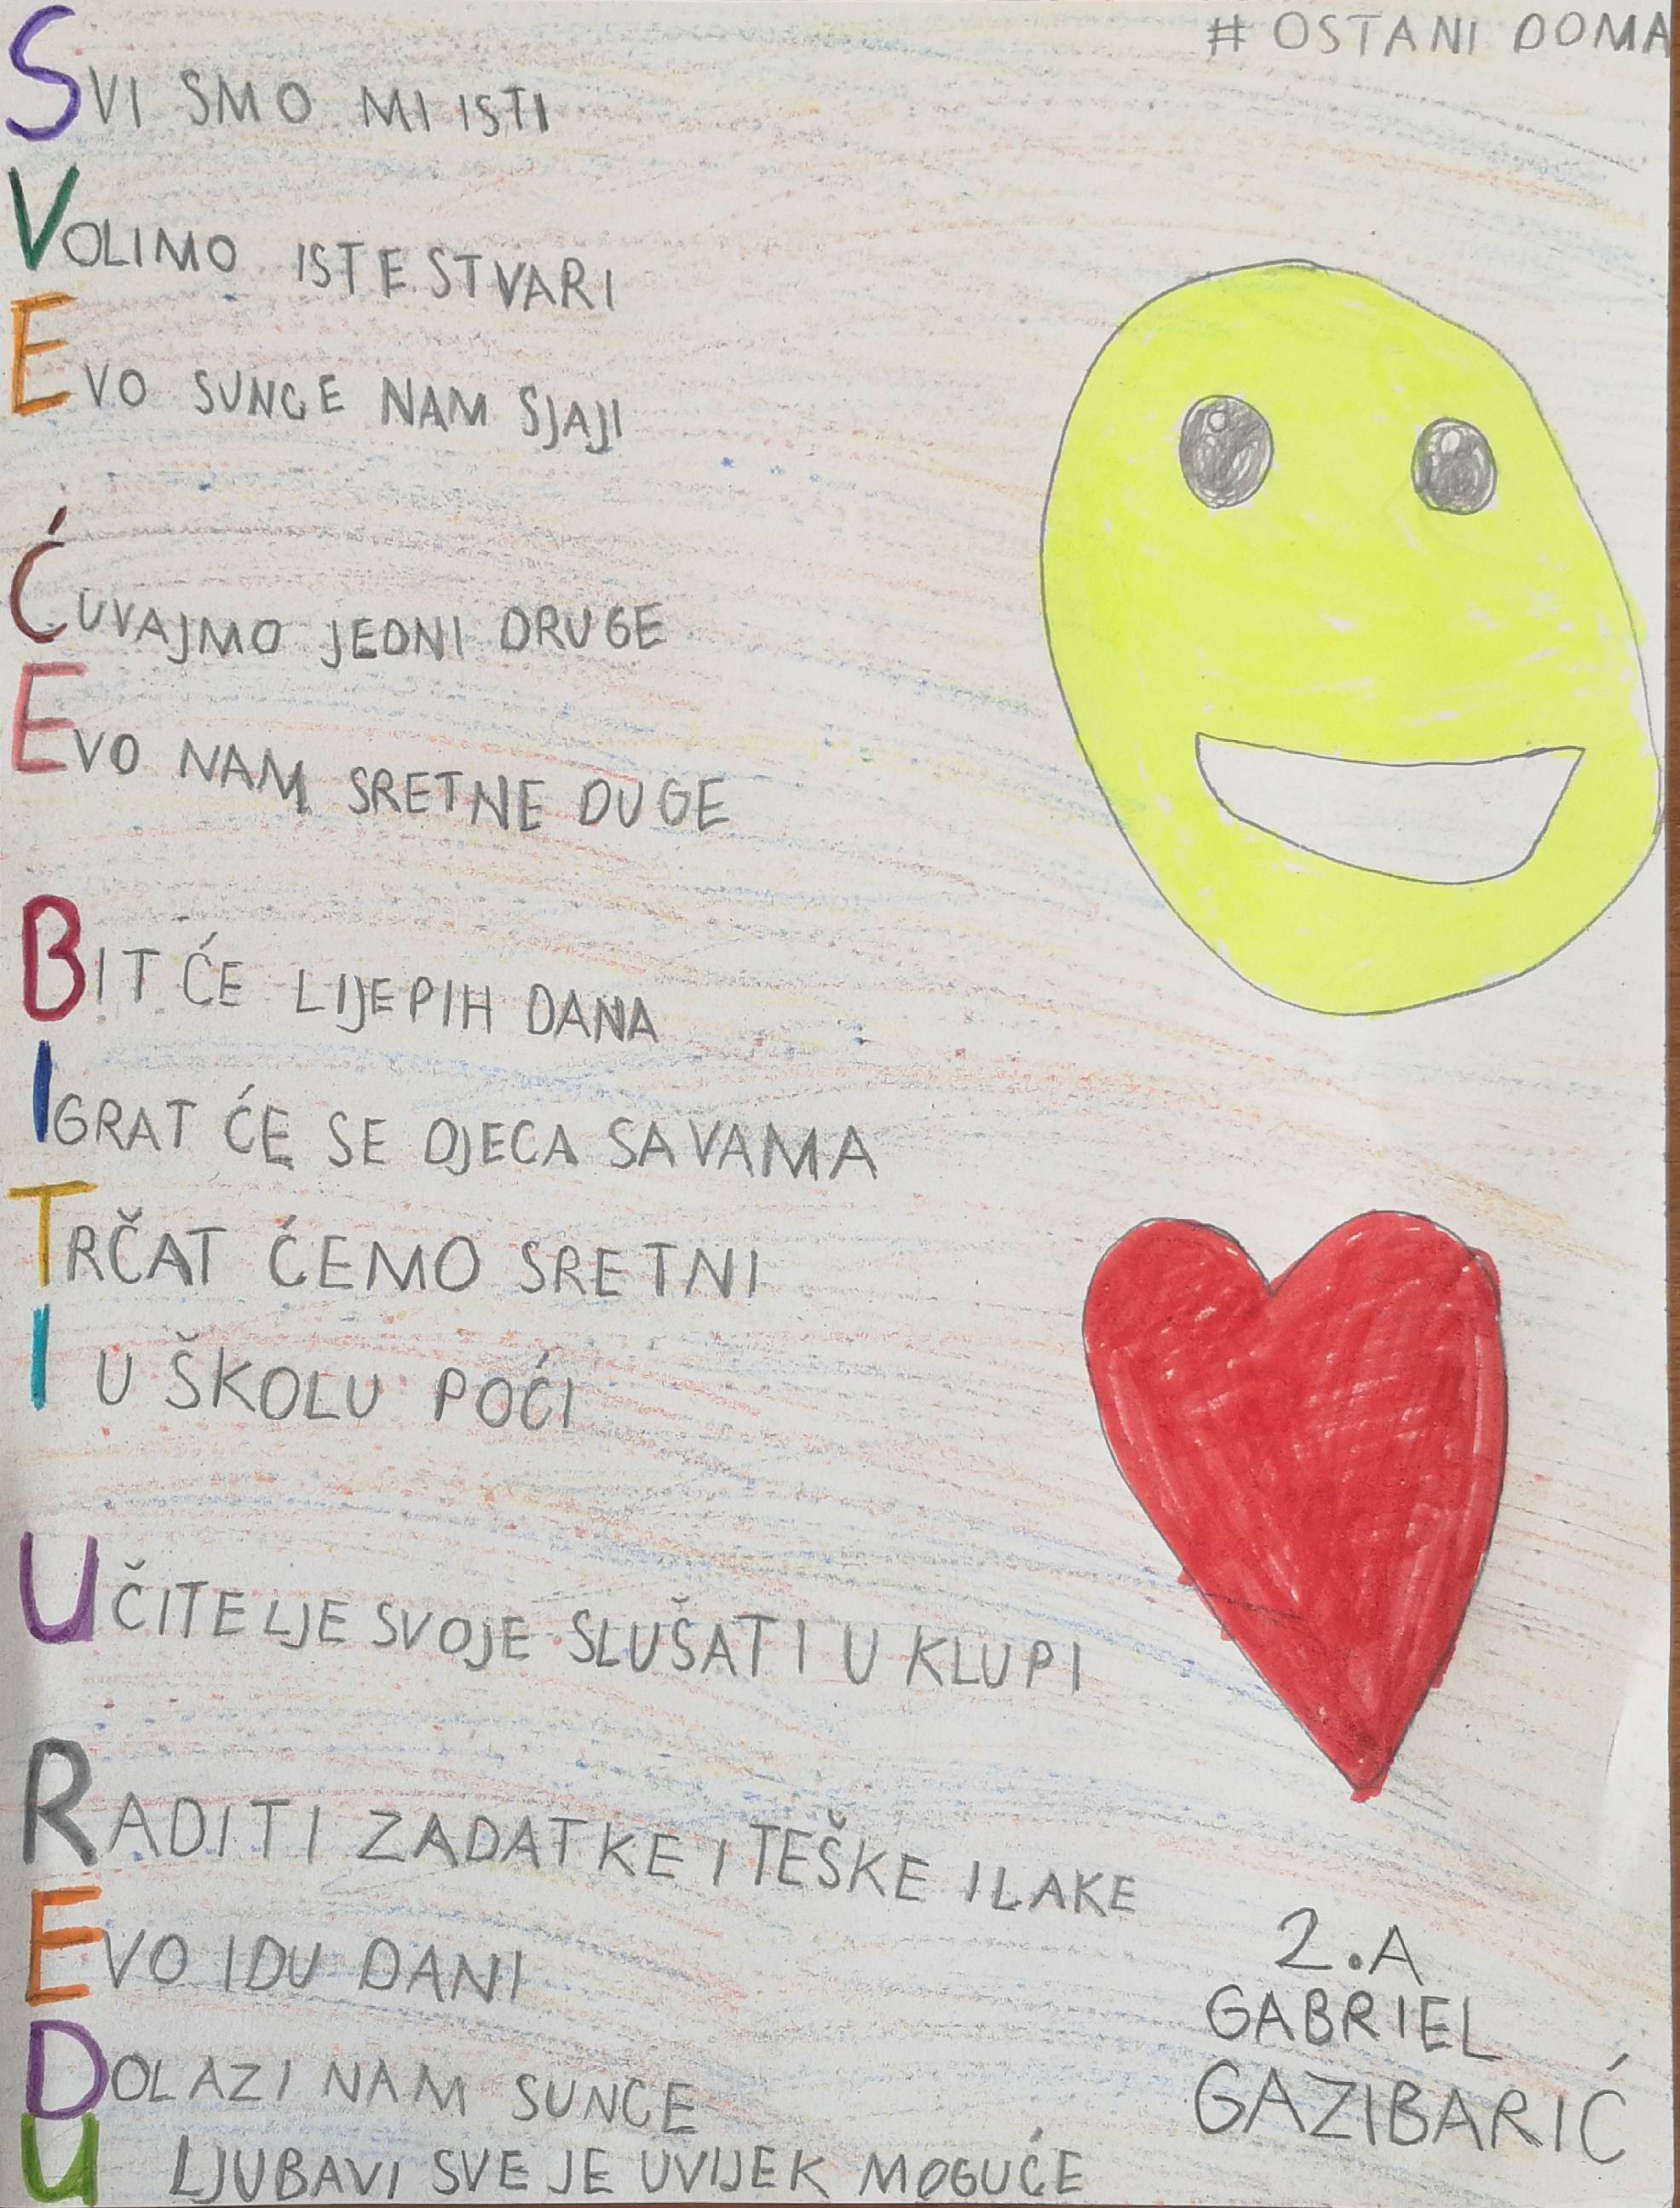 # OSTANI DOMA
SVI SMO MI ISTI
VOLIMO ISTE STVARI
EVO SUNCE NAM SJAJI
ĆUVAJMO JEDNI DRUGE
EVO NAM SRETNE DUGE
BIT ĆE LIJEPIH DANA
IGRAT ĆE SE DJECA SA VAMA
TRČAT ĆEMO SRETNI
I U ŠKOLU POĆI
UČITELJE SVOJE SLUŠATI U KLUPI
RADITI ZADATKE I TEŠKE I LAKE
EVO IDU DANI
DOLAZI NAM SUNCE
U LJUBAVI SVE JE UVIJEK MOGUĆE
2.A
GABRIEL
GAZIBARIĆ